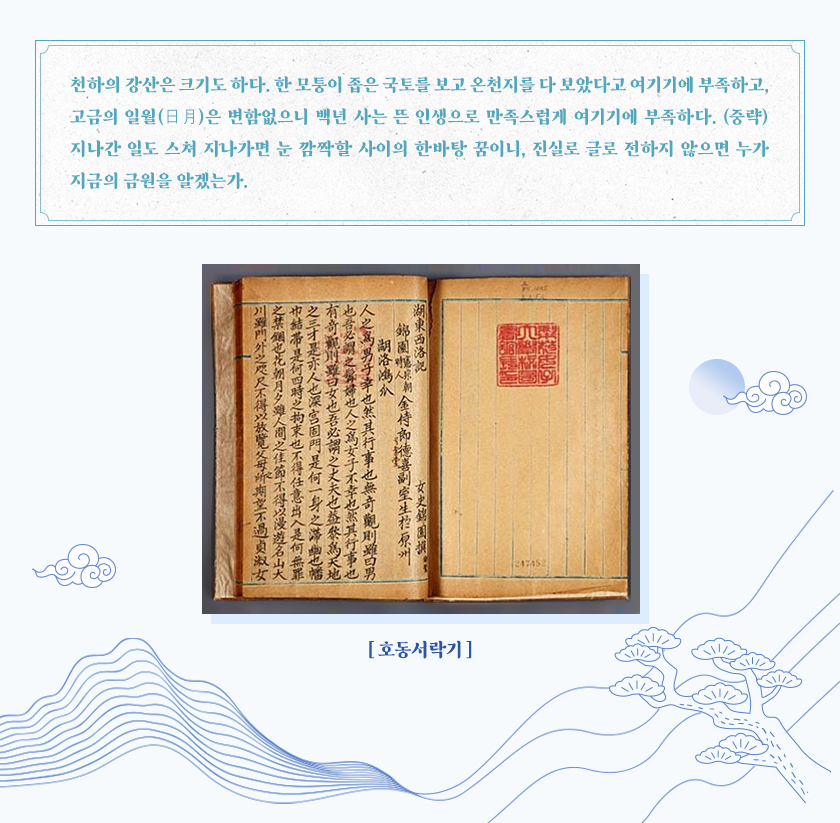 천하의 강산은 크기도 하다. 한 모퉁이 좁은 국토를 보고 온천지를 다 보았다고 여기기에 부족하고,
고금의 일월(日月)은 변함없으니 백년 사는 뜬 인생으로 만족스럽게 여기기에 부족하다. (중략)
지나간 일도 스쳐 지나가면 눈 깜짝할 사이의 한바탕 꿈이니, 진실로 글로 전하지 않으면 누가
지금의 금원을 알겠는가.
湖東西洛記
女史錦園撰
錦園
金侍郞德喜副室生於原州
湖洛鴻爪
人之爲男子幸也然其行事也無奇觀則雖曰男
也吾必謂之
婦也人之爲女子不幸也然其行事也
有奇觀則雖曰女也吾必謂之丈夫也
爲天地
之三才是亦人也深宮固門是何一身之滯幽也
結帶是何四時之拘束也不得任意出入是何無罪
之禁錮也花朝月夕雖人間之佳節不得以漫遊名山大
川雖門外之咫尺不得以放覽父母所期望不過貞淑女
247452
[ 호동서락기 ]